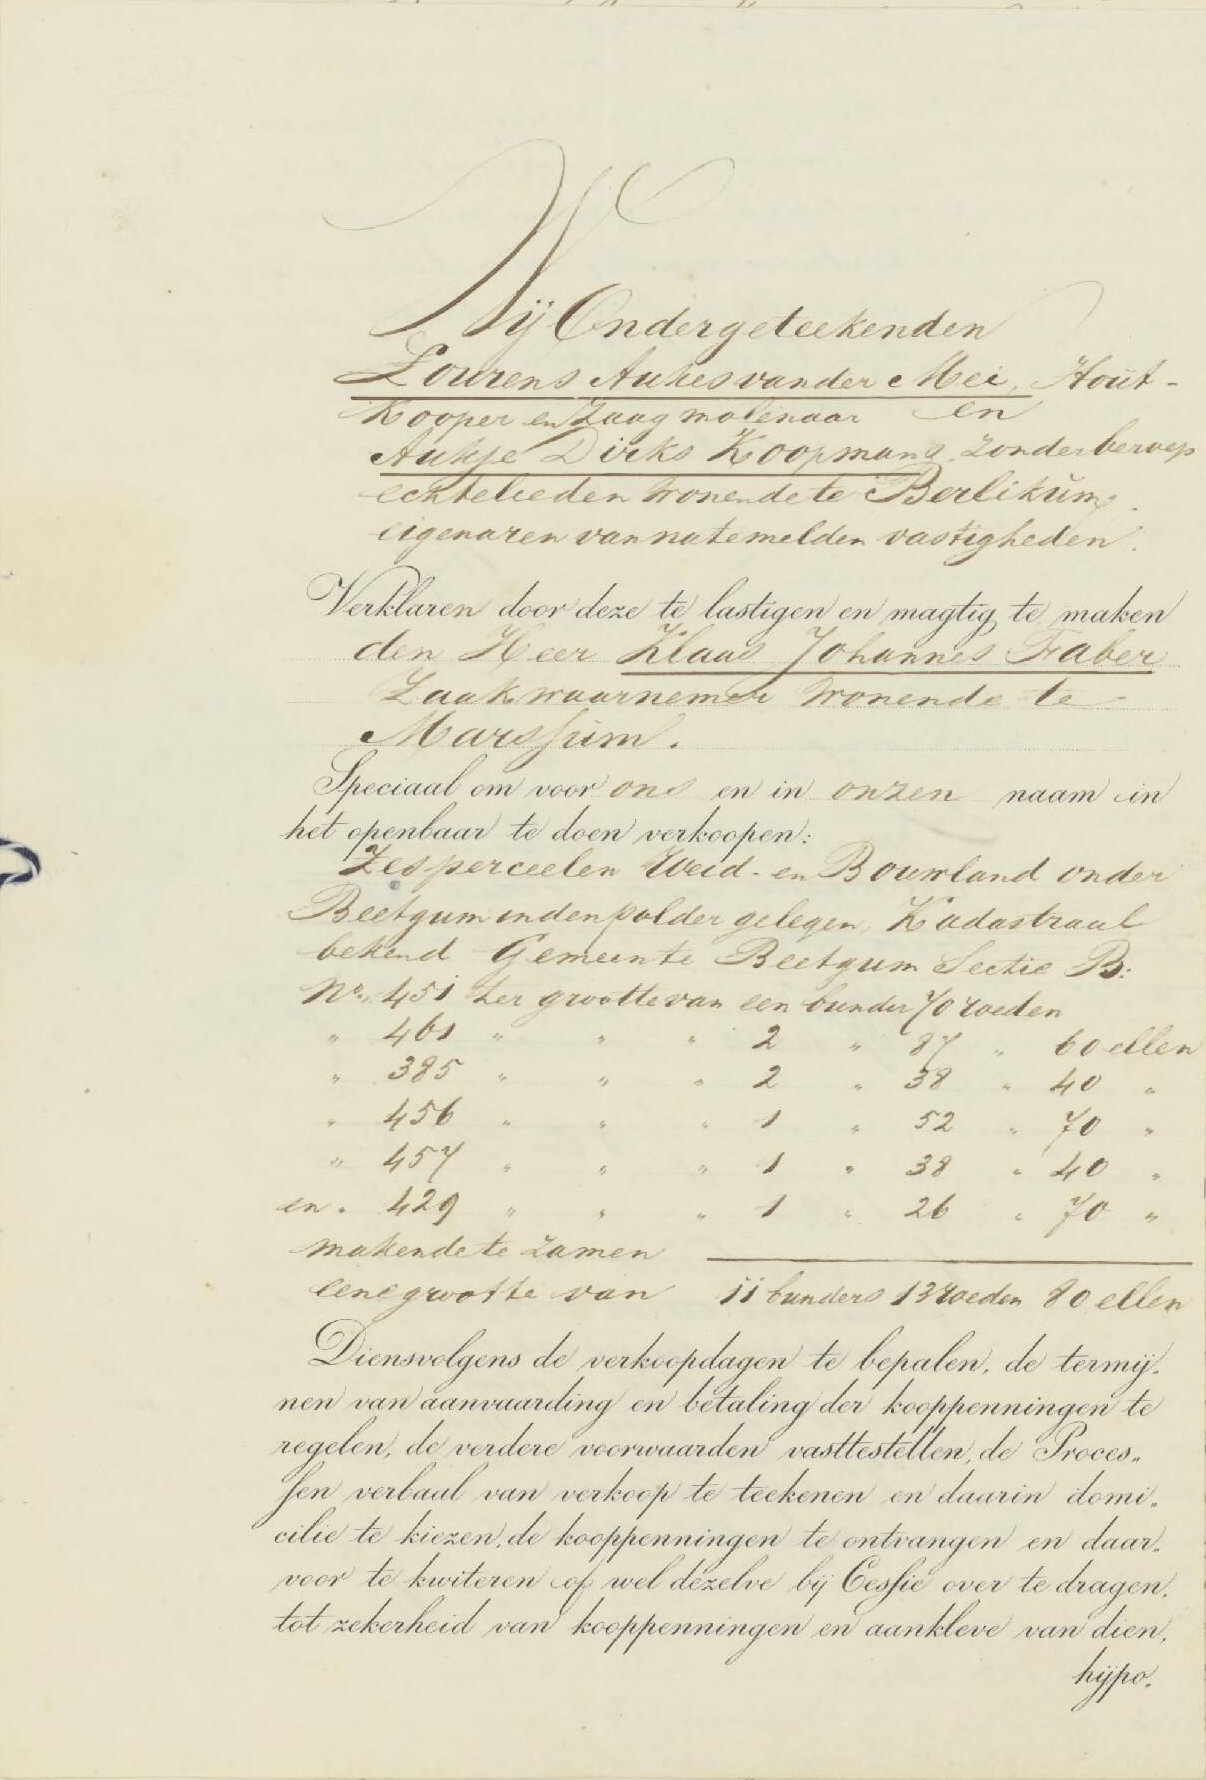 Wij Ondergeteekenden
Lourens Aukes van der Mei, Hout-
Kooper en Zaagmolenaar en
Aukje Dirks Koopmans zonder beroep
echtelieden wonende te Berlikum,
eigenaren van natemelden vastigheden.
Verklaren door deze te lastigen en magtig te maken
den Heer Klaas Johannes Faber
Zaakwaarnemer wonende te
Marssum.
Speciaal om voor ons en in onzen naam in
het openbaar te doen verkoopen:
Zes perceelen Weid- en Bouwland onder
Beetgum in den polder gelegen, Kadastraal
bekend Gemeente Beetgum Sectie B:
No. 451 ter grootte van een bunder 70 roeden
" 461 " " " 2 " 87 " 60 ellen
" 385 " " " 2 " 38 " 40 "
" 456 " " " 1 " 52 " 70 "
" 457 " " " 1 " 38 " 40 "
en " 429 " " " 1 " 26 " 70 "
makende te zamen
eene grootte van 11 bunders 13 roeden 80 ellen
Diensvolgens de verkoopdagen te bepalen, de termij-
nen van aanvaarding en betaling der kooppenningen te
regelen, de verdere voorwaarden vasttestellen, de Proces-
sen verbaal van verkoop te teekenen en daarin domi-
cilie te kiezen, de kooppenningen te ontvangen en daar-
voor te kwiteren of wel dezelve bij Cessie over te dragen,
tot zekerheid van kooppenningen en aankleve van dien,
hypo-